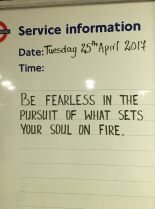 Service information
Date: Tuesday 25th April 2017
Time:
BE FEARLESS IN THE
PURSUIT OF WHAT SETS
YOUR SOUL ON FIRE.